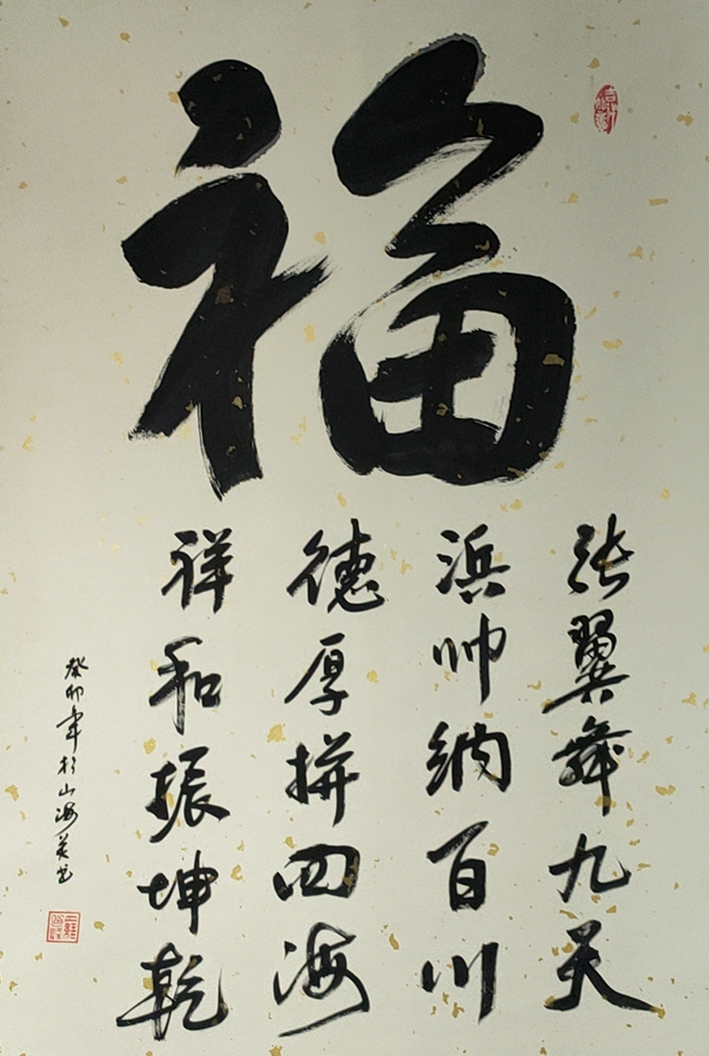 福
张翼舞九天
浜帅纳百川
德厚拼四海
祥和振坤乾
癸卯年于山海关书